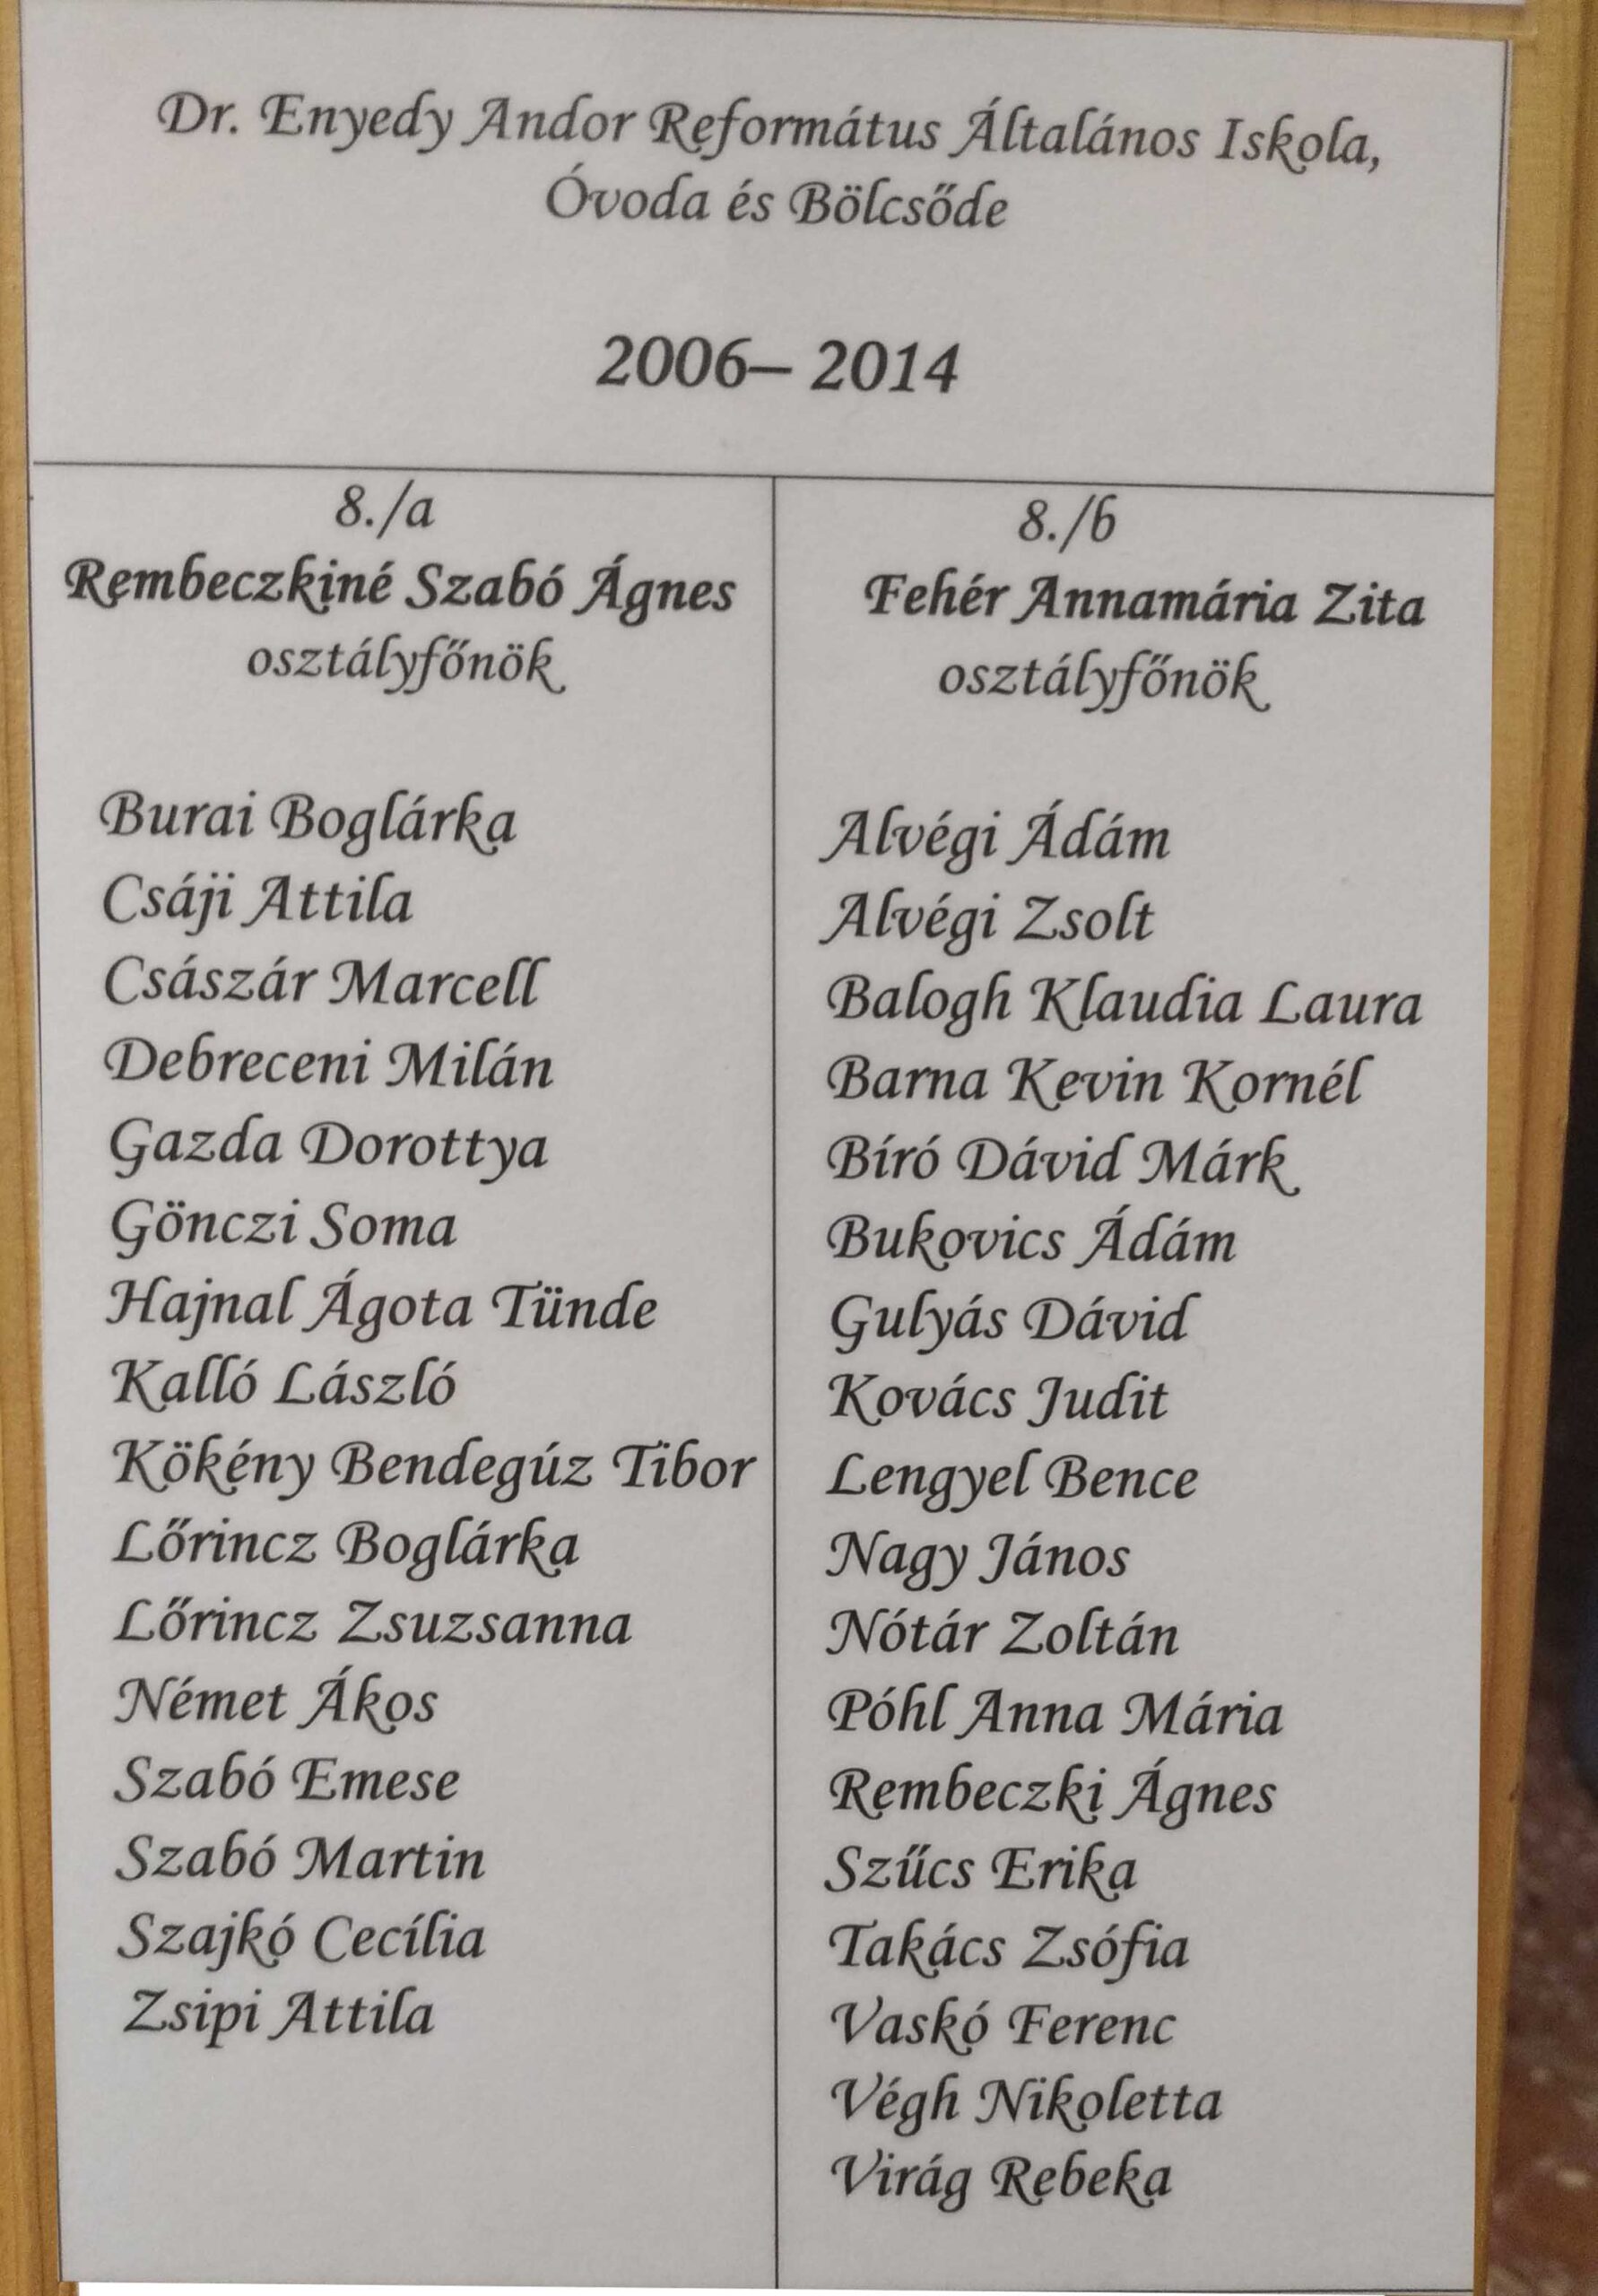 Dr. Enyedy Andor Református Általános Iskola,
Óvoda és Bölcsőde
2006– 2014
8./a
Rembeczkiné Szabó Ágnes
osztályfőnök
Burai Boglárka
Csáji Attila
Császár Marcell
Debreceni Milán
Gazda Dorottya
Gönczi Soma
Hajnal Ágota Tünde
Kalló László
Kökény Bendegúz Tibor
Lőrincz Boglárka
Lőrincz Zsuzsanna
Német Ákos
Szabó Emese
Szabó Martin
Szajkó Cecília
Zsipi Attila
8./b
Fehér Annamária Zita
osztályfőnök
Alvégi Ádám
Alvégi Zsolt
Balogh Klaudia Laura
Barna Kevin Kornél
Bíró Dávid Márk
Bukovics Ádám
Gulyás Dávid
Kovács Judit
Lengyel Bence
Nagy János
Nótár Zoltán
Póhl Anna Mária
Rembeczki Ágnes
Szűcs Erika
Takács Zsófia
Vaskó Ferenc
Végh Nikoletta
Virág Rebeka